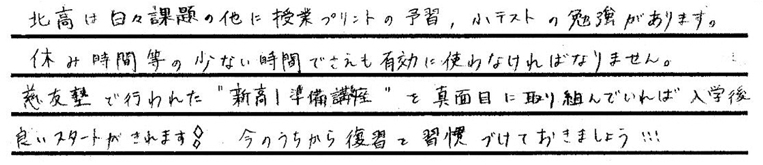 北高は日々課題の他に授業プリントの予習,小テストの勉強があります。
休み時間等の少ない時間でさえも有効に使わなければなりません。
慈友塾で行われた"新高1準備講座"を真面目に取り組んでいれば入学後
良いスタートがきれます! 今のうちから復習を習慣づけておきましょう!!!